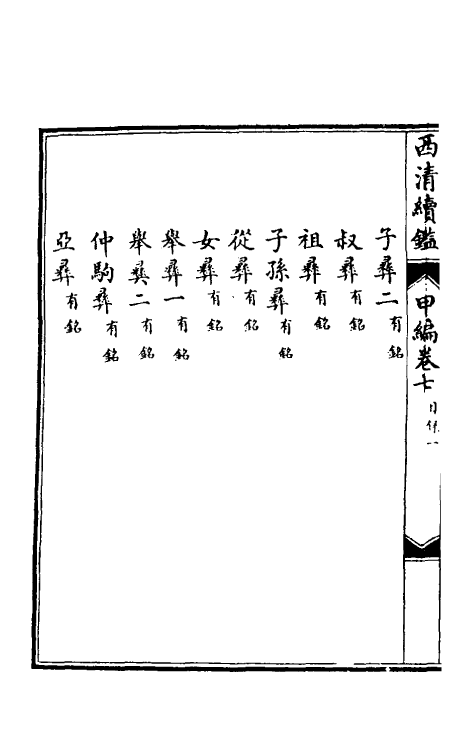 西清續鑑 甲編卷七
子彝二 有銘
叔彝 有銘
祖彝 有銘
子孫彝 有銘
從彝 有銘
女彝 有銘
舉彝一 有銘
舉彝二 有銘
仲駒彝 有銘
亞彝 有銘